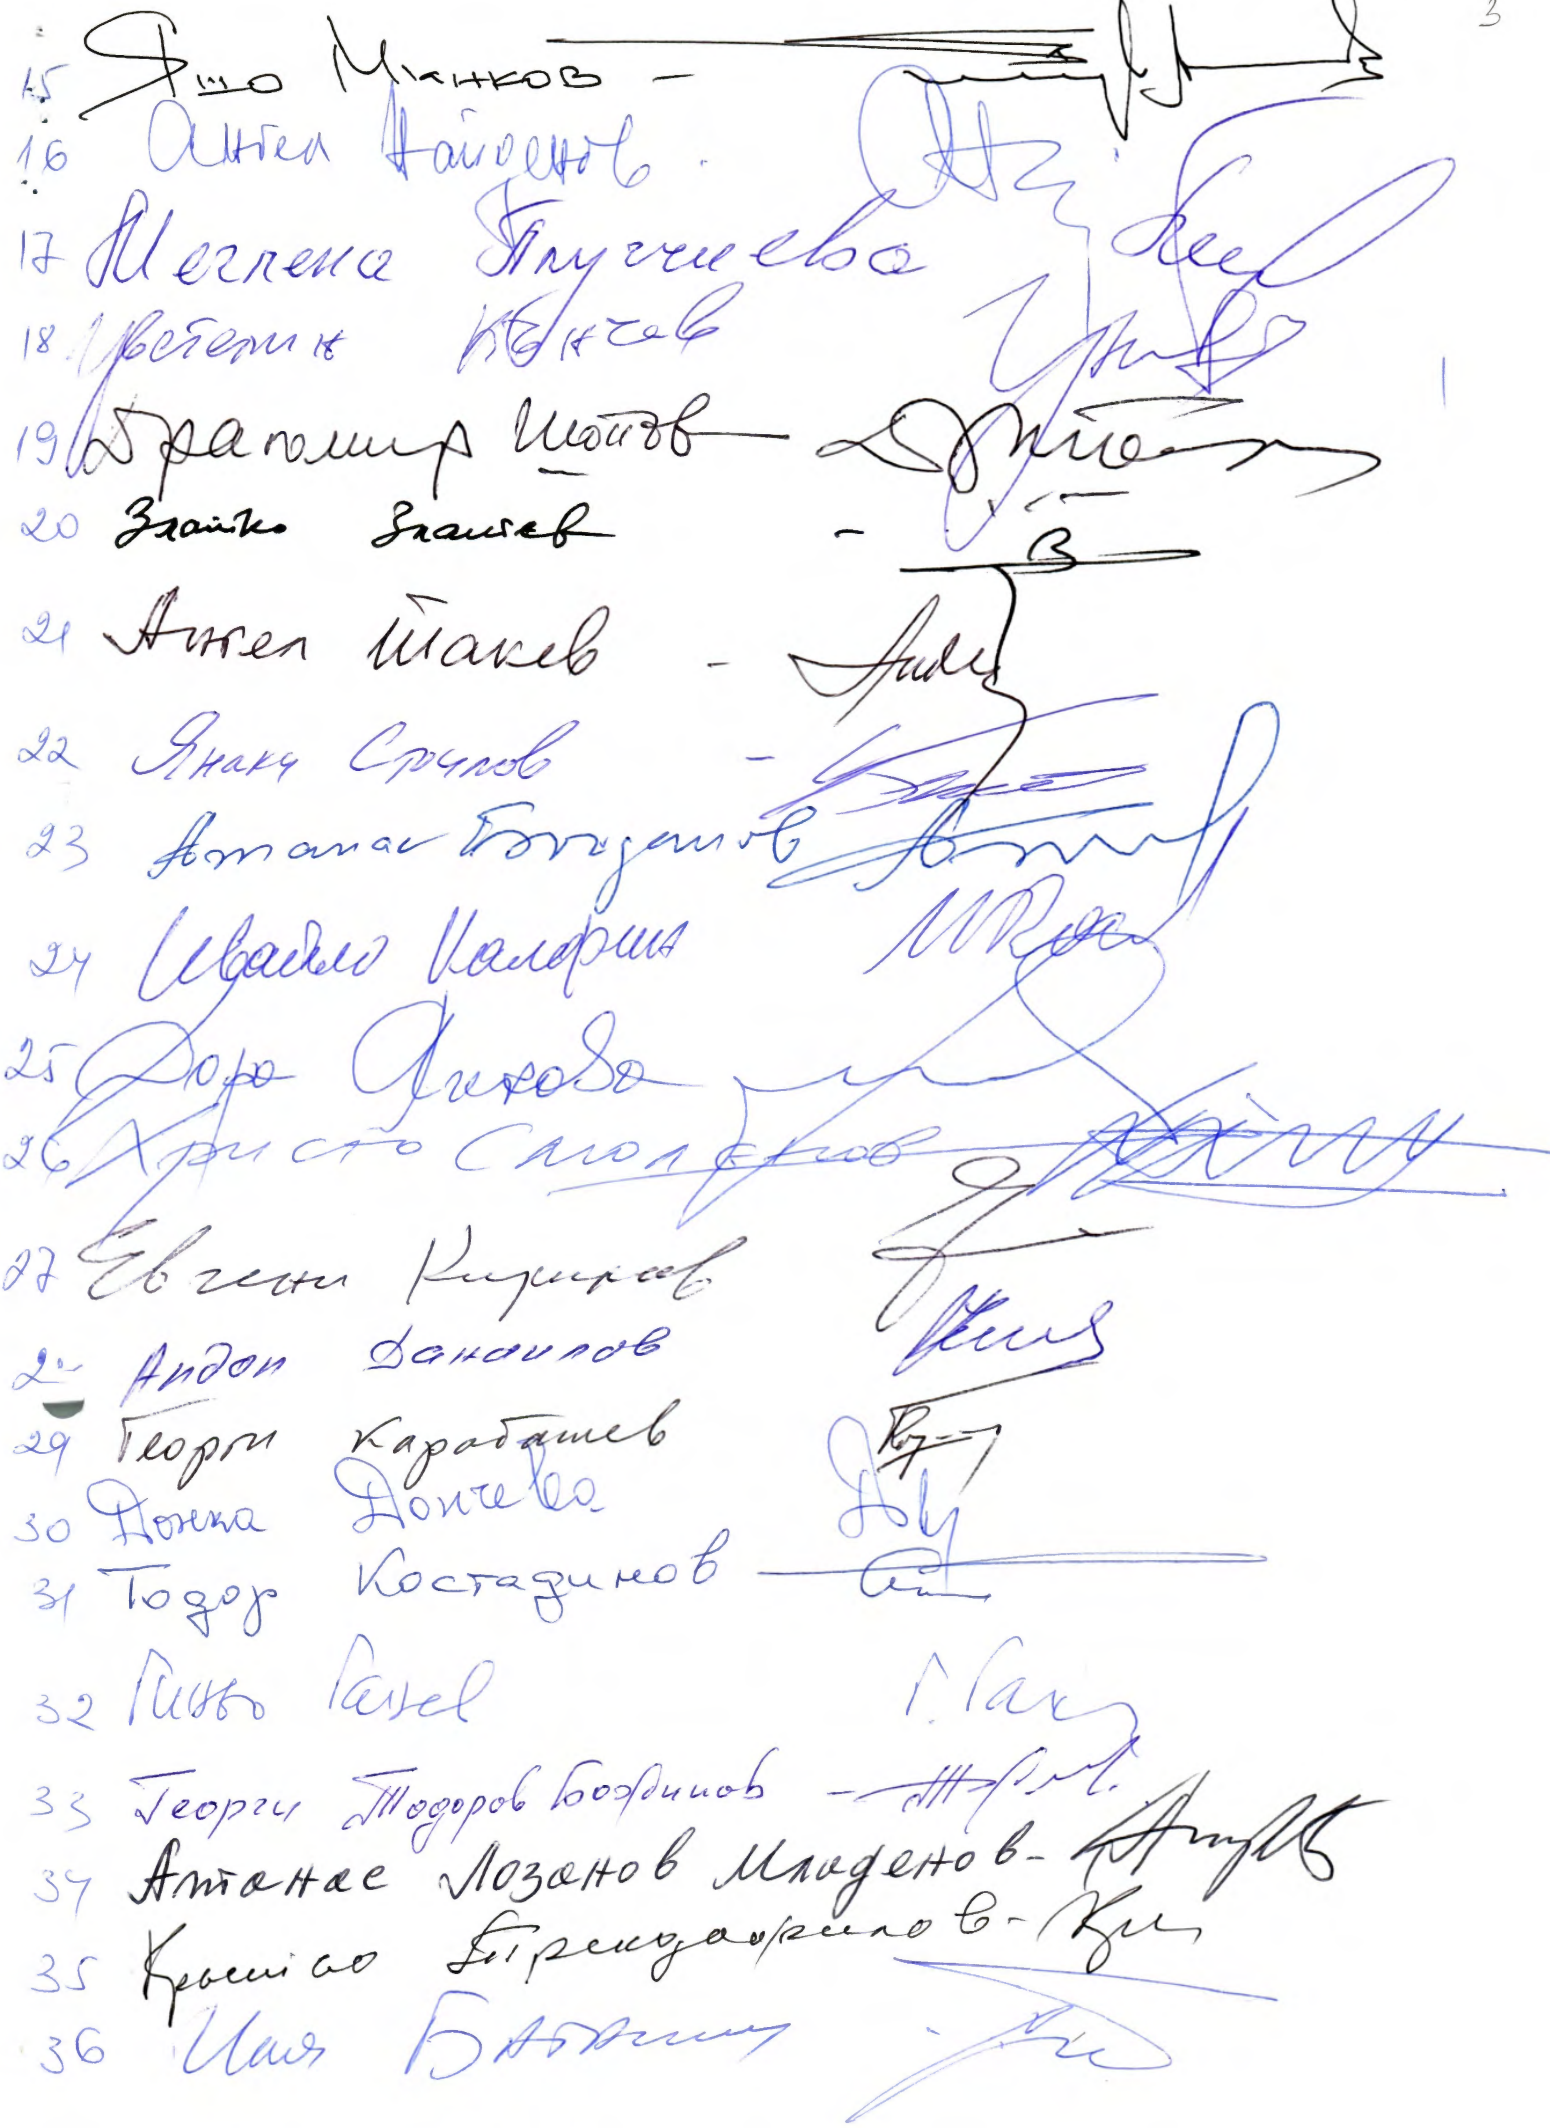 3
15 Яшо Минков -
16 Ангел Найденов
17 Меглена Плугчиева
18 Цветелин Кънчев
19 Драгомир Шопов
20 Златко Златев -
21 Ангел Такев -
22 Янаки Стоилов -
23 Атанас Богданов
24 Ивайло Калфин
25 Дора Янкова
26 Христо Смоленов
27 Евгени Кирилов
Андон Данаилов
29 Георги Карабашев
30 Донка Дончева
31 Тодор Костадинов
32 Гиньо Ганев Г. Ганев
33 Георги Тодоров Божинов -
34 Атанас Лозанов Младенов -
35 Кръстьо Трендафилов -
36 Илия Баташки